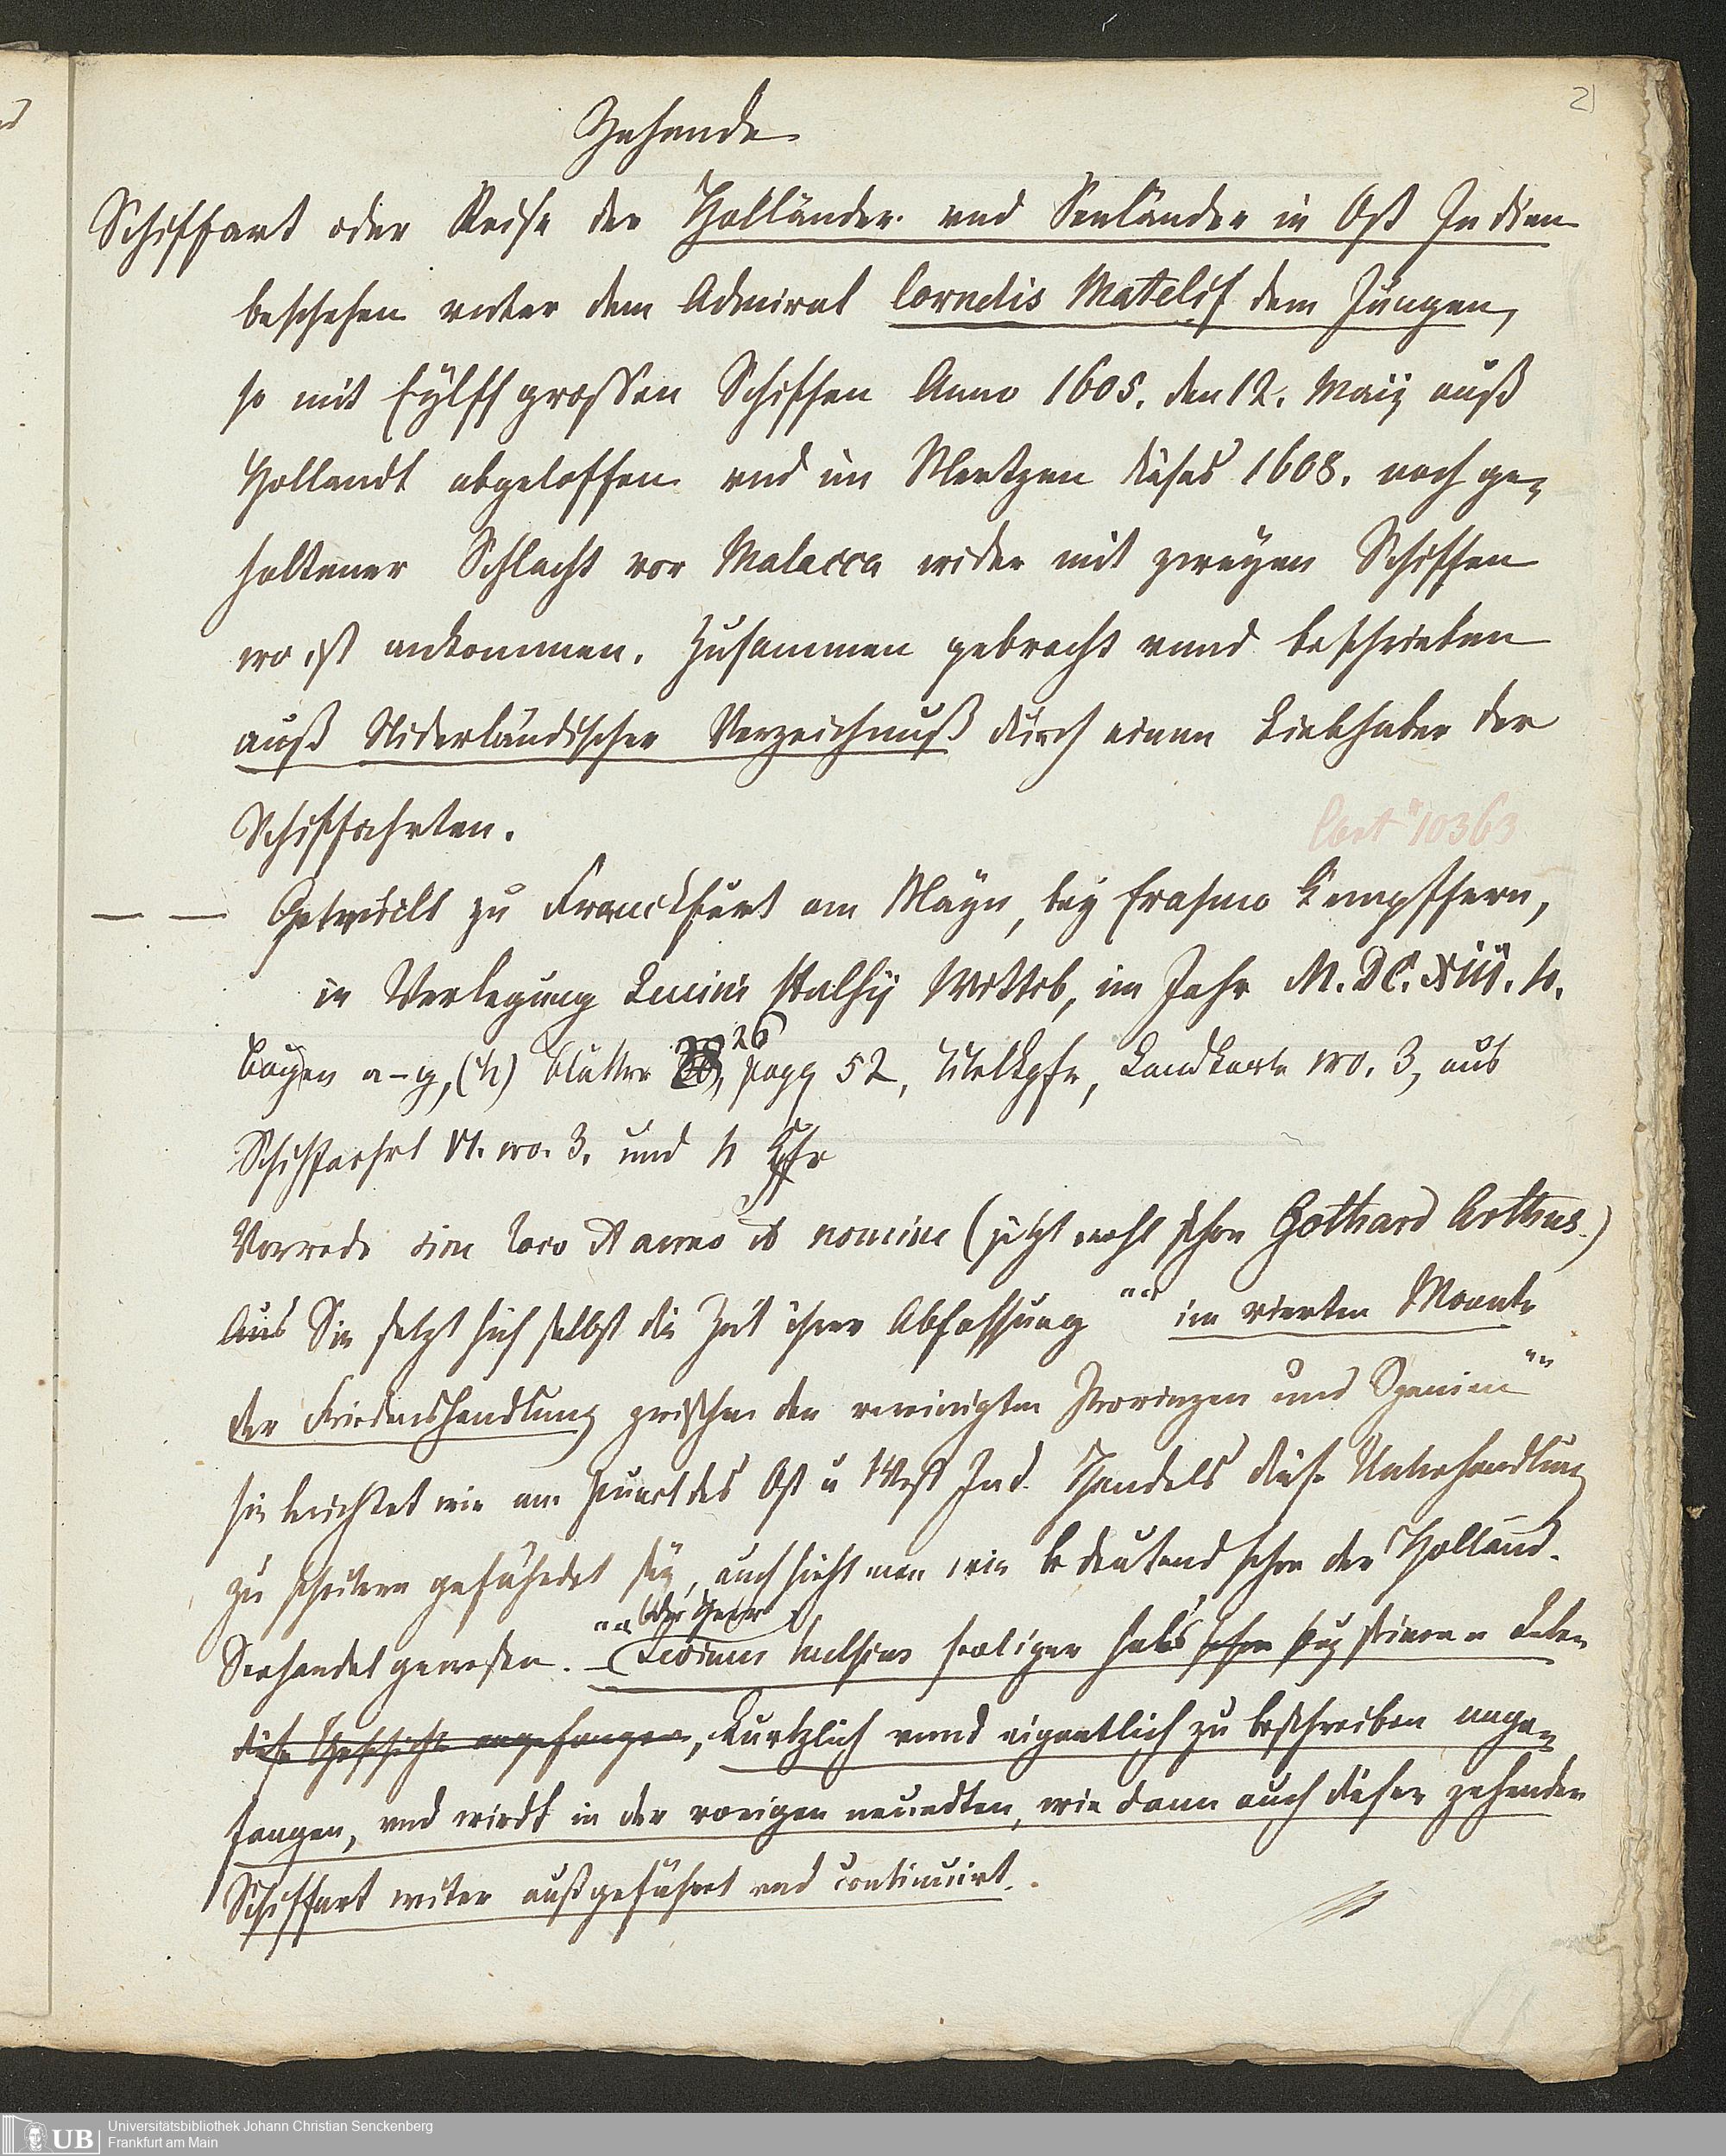 21
Zehende
Schiffart oder Reise der Holländer vnd Seeländer in Ost Indien
beschehen vnter dem Admiral Cornelis Matelif dem Jüngen,
so mit Eylff grossen Schiffen Anno 1605. den 12. Maij auß
Hollandt abgeloffen vnd im Mertzen dieses 1608. nach ge-
haltener Schlacht vor Malacca wider mit zweyen Schiffen
wo ist ankommen. Zusammen gebracht vnnd beschrieben
auß Niderländischer Verzeichnuß durch einen Liebhaber der
Schiffahrten.
10363
— — Getruckt zu Franckfurt am Mayn, bey Erasmo Kempffern,
in Verlegung Levini Hulsij Wittib, im Jahr M.DC.XIII. 4.
Bogen a-g, (h) Blätter 26 pagg 52, Titelkpfr, Landkarte no. 3, aus
Schiffarht VI. no. 3. und 4 Kpfr
Vorrede sine loco et anno et nomine (jetzt wohl schon Gothard Arthus.)
Aus Sie setzt sich selbst die Zeit ihrer Abfassung "" im vierten Monate
der Friedenshandlung zwischen den vereinigten Provinzen und Spanien ""
sie berichtet wie am Punct des Ost u West Ind. Handels diese Unterhandlung
zu scheitern gefährdet sey, auch sieht man wie bedeutend schon der Holländ.
Seehandel gewesen. "" (der Herr) Levinus Hulsius seeliger hab schon bey seinem Leben
diese Geschichte angefangen, Kurtzlich vnnd eigentlich zu beschreiben ange-
fangen, vnd wirdt in der vorigen neundten, wie dann auch dieser zehenden
Schiffart weiter außgeführt vnd continuirt.
UB Universitätsbibliothek Johann Christian Senckenberg
Frankfurt am Main